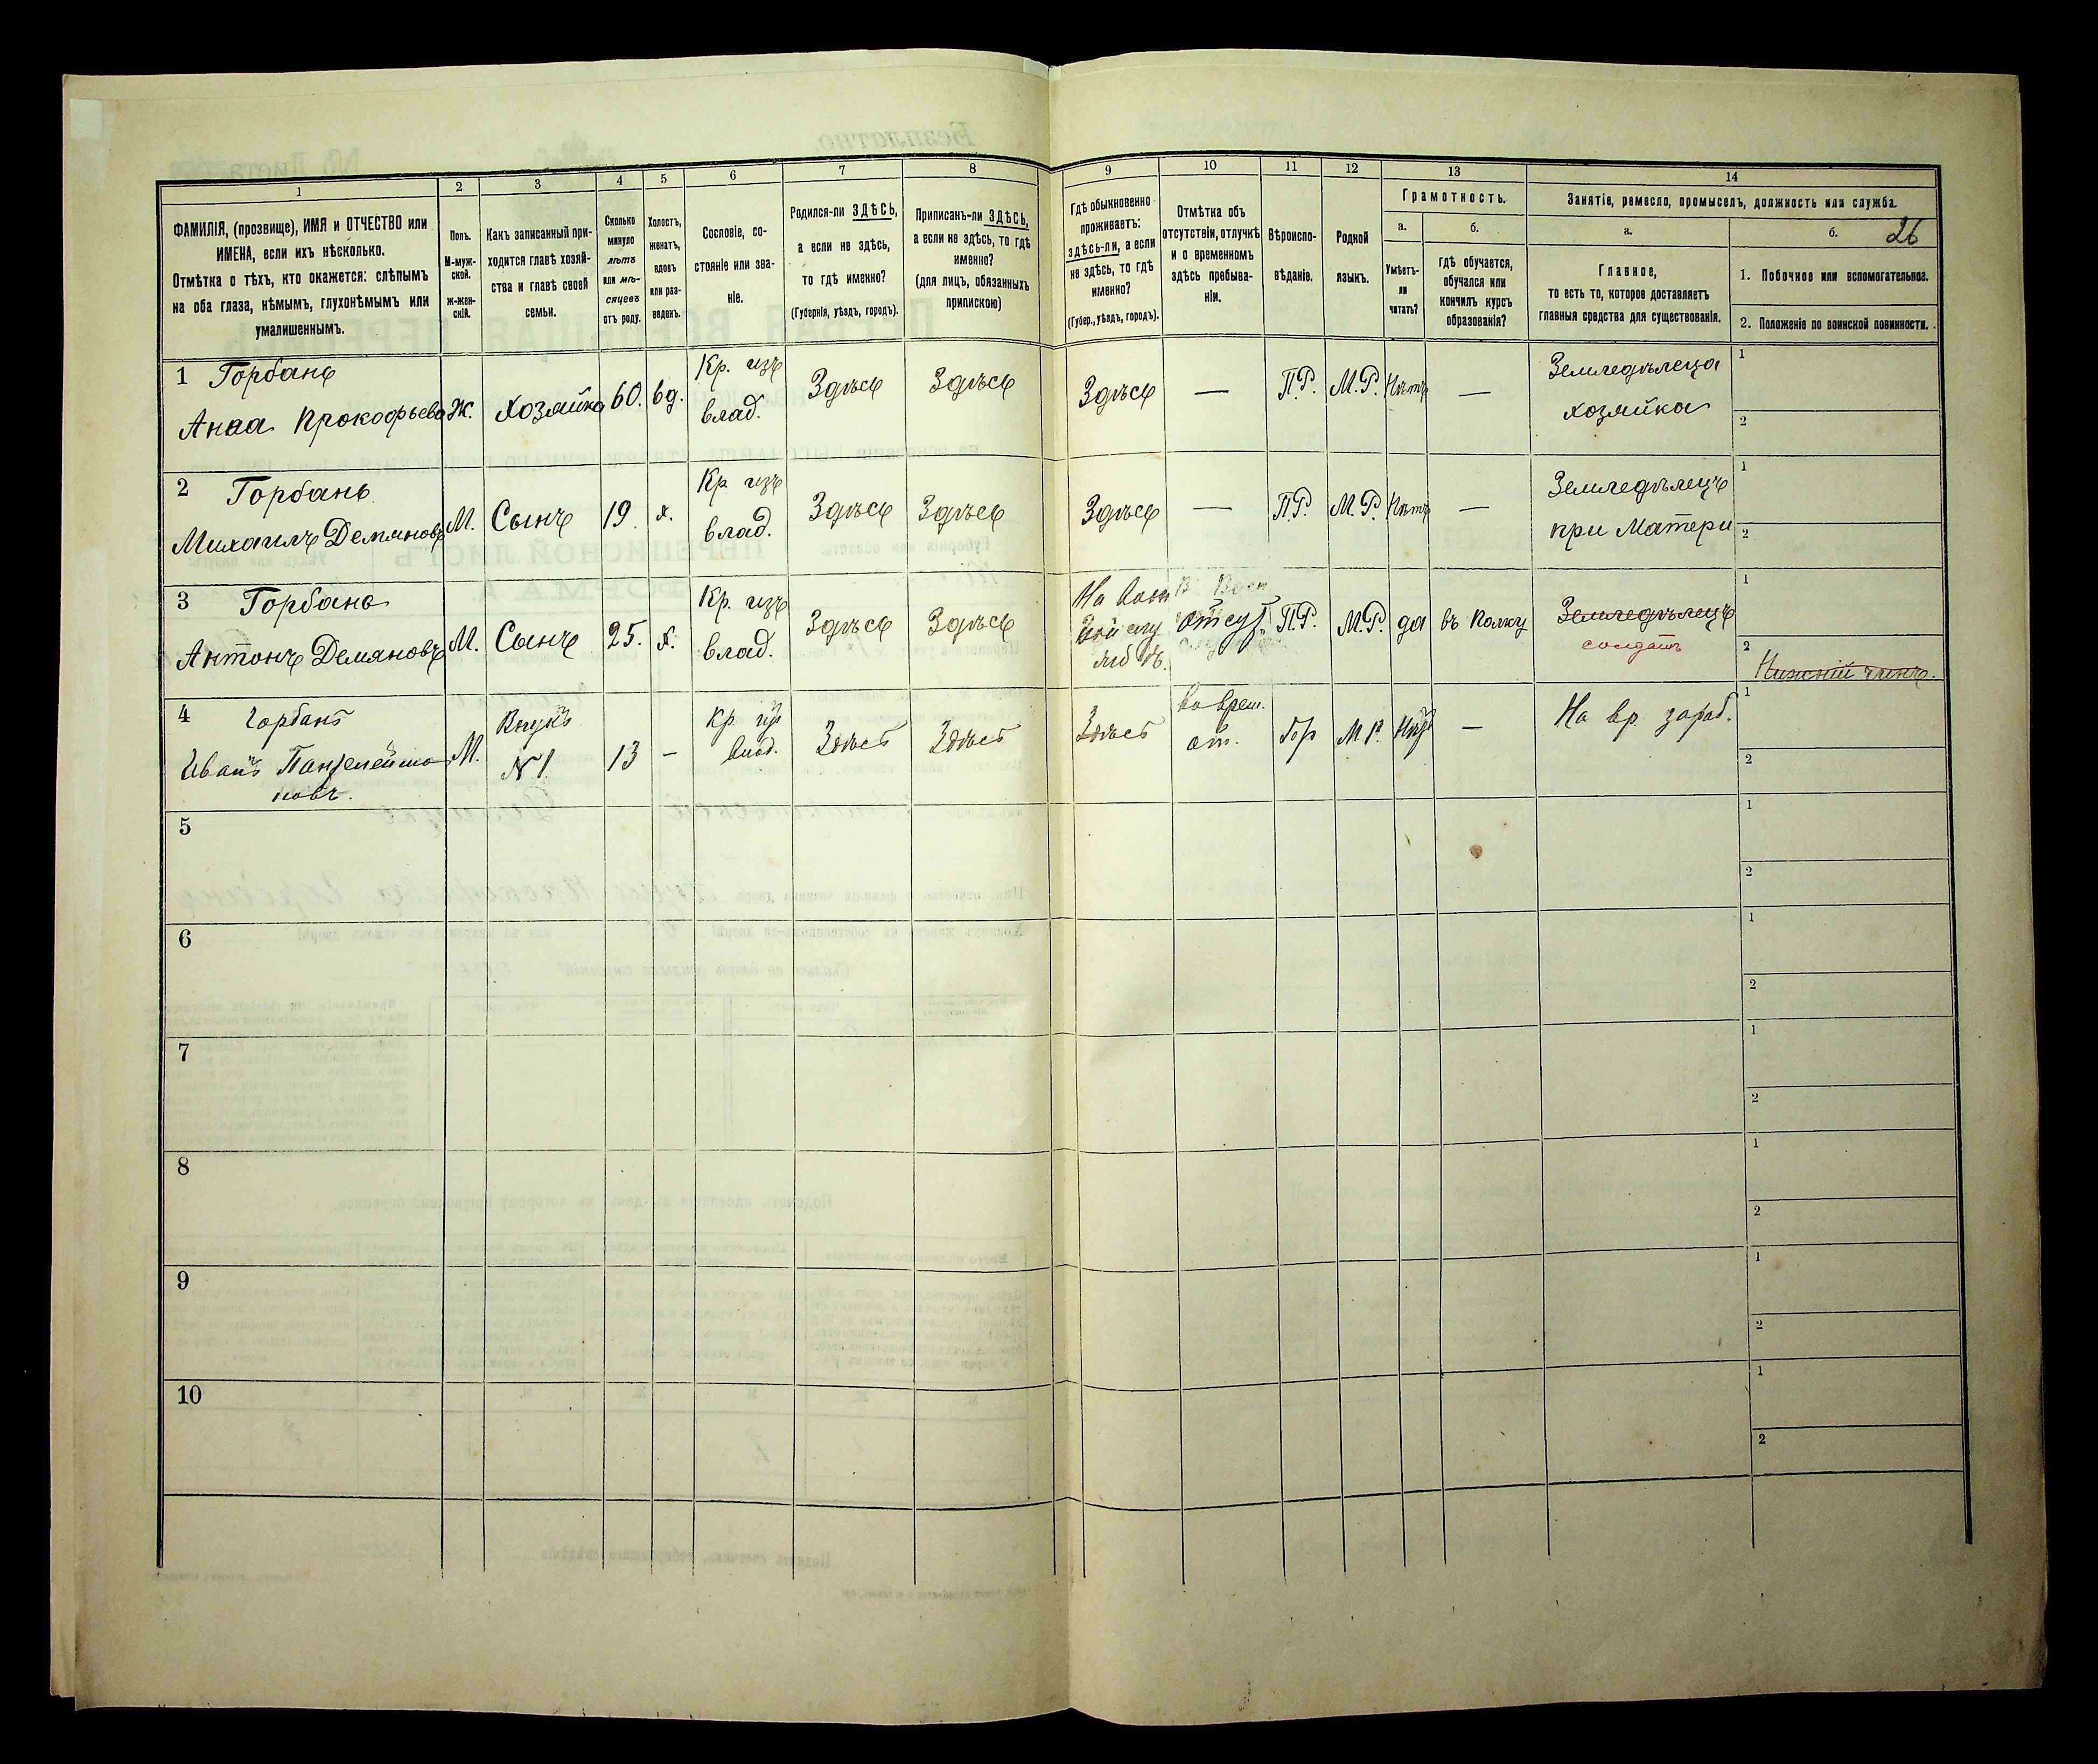 1 2 3 4 5 6 7 8 9 10 11 12 13 14
ФАМИЛІЯ, (прозвище), ИМЯ и ОТЧЕСТВО или
ИМЕНА, если ихъ нѣсколько.
Отмѣтка о тѣхъ, кто окажется: слѣпымъ
на оба глаза, нѣмымъ, глухонѣмымъ или
умалишеннымъ.
Полъ.
М-муж-
ской.
ж-жен-
скій.
Какъ записанный при-
ходится главѣ хозяй-
ства и главѣ своей
семьи.
Сколько
минуло
лѣтъ
или мѣ-
сяцевъ
отъ роду.
Холостъ,
женатъ,
вдовъ
или раз-
веденъ.
Сословіе, со-
стояніе или зва-
ніе.
Родился-ли ЗДѢСЬ,
а если не здѣсь,
то гдѣ именно?
(Губернія, уѣздъ, городъ).
Приписанъ-ли ЗДѢСЬ,
а если не здѣсь, то гдѣ
именно?
(для лицъ, обязанныхъ
припискою)
Гдѣ обыкновенно
проживаетъ:
здѣсь-ли, а если
не здѣсь, то гдѣ
именно?
(Губер., уѣздъ, городъ).
Отмѣтка объ
отсутствіи, отлучкѣ
и о временномъ
здѣсь пребыва-
ніи.
Вѣроиспо-
вѣданіе.
Родной
языкъ.
Грамотность.
а.
Умѣетъ-
ли
читать?
б.
гдѣ обучается,
обучался или
кончилъ курсъ
образованія?
Занятіе, ремесло, промыселъ, должность или служба.
а.
Главное,
то есть то, которое доставляетъ
главныя средства для существованія.
б. 26
1. Побочное или вспомогательное.
2. Положеніе по воинской повинности.
1 Горбань
Анна Прокофьева
Ж.
Хозяйка
60.
вд.
Кр. изъ
влад.
Здѣсь
Здѣсь
Здѣсь
—
П.Р.
М.Р.
Нѣтъ
—
Земледѣлеца
хозяйка
1
2
2 Горбань
Михаилъ Демяновъ
М.
Сынъ
19.
х.
Кр изъ
влад.
Здѣсь
Здѣсь
Здѣсь
—
П.Р.
М.Р.
Нѣтъ
—
Земледѣлецъ
при Матери
1
2
3 Горбань
Антонъ Демяновъ
М.
Сынъ
25.
х.
Кр. изъ
влад.
Здѣсь
Здѣсь
На
отсут
П.Р.
М.Р.
да
въ Полку
Земледѣлецъ
солдатъ
1
2
Нижній чинъ.
4 Горбань
Иванъ Пантелеймо
новъ.
М.
Внукъ
№1.
13
—
Кр изъ
влад.
Здѣсь
Здѣсь
Здѣсь
Во врем.
от.
Пр
М Р.
Нѣтъ
—
На вр. зараб.
1
2
5
1
2
6
1
2
7
1
2
8
1
2
9
1
2
10
1
2